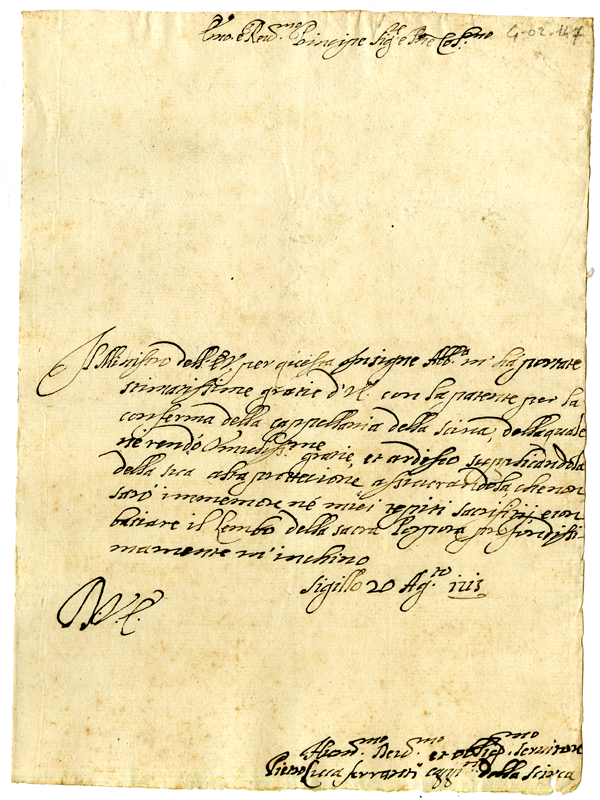 Em.o e Rev.mo Principe Sig.r e P.ne Col.mo
Il Ministro dell'E.V. per questa insigne Abb.a m'ha portate
stimatissime gratie d'V.E. con la patente per la
conferma della cappellania della scirca, della quale
ne rendo Umilissime gratie, et ardisco supplicandola
della sua alta protezione assicurandola che non
sarò immemore né miei sacrifitij e con
baciare il Lembo della sacra Porpora profondissi
mamente m'inchino
Sigillo 20 Ag.to
D. V. E.
Humil.mo Dev.mo et oblig.mo servitore
Pietro Luca Ferranti capp.no della scirca